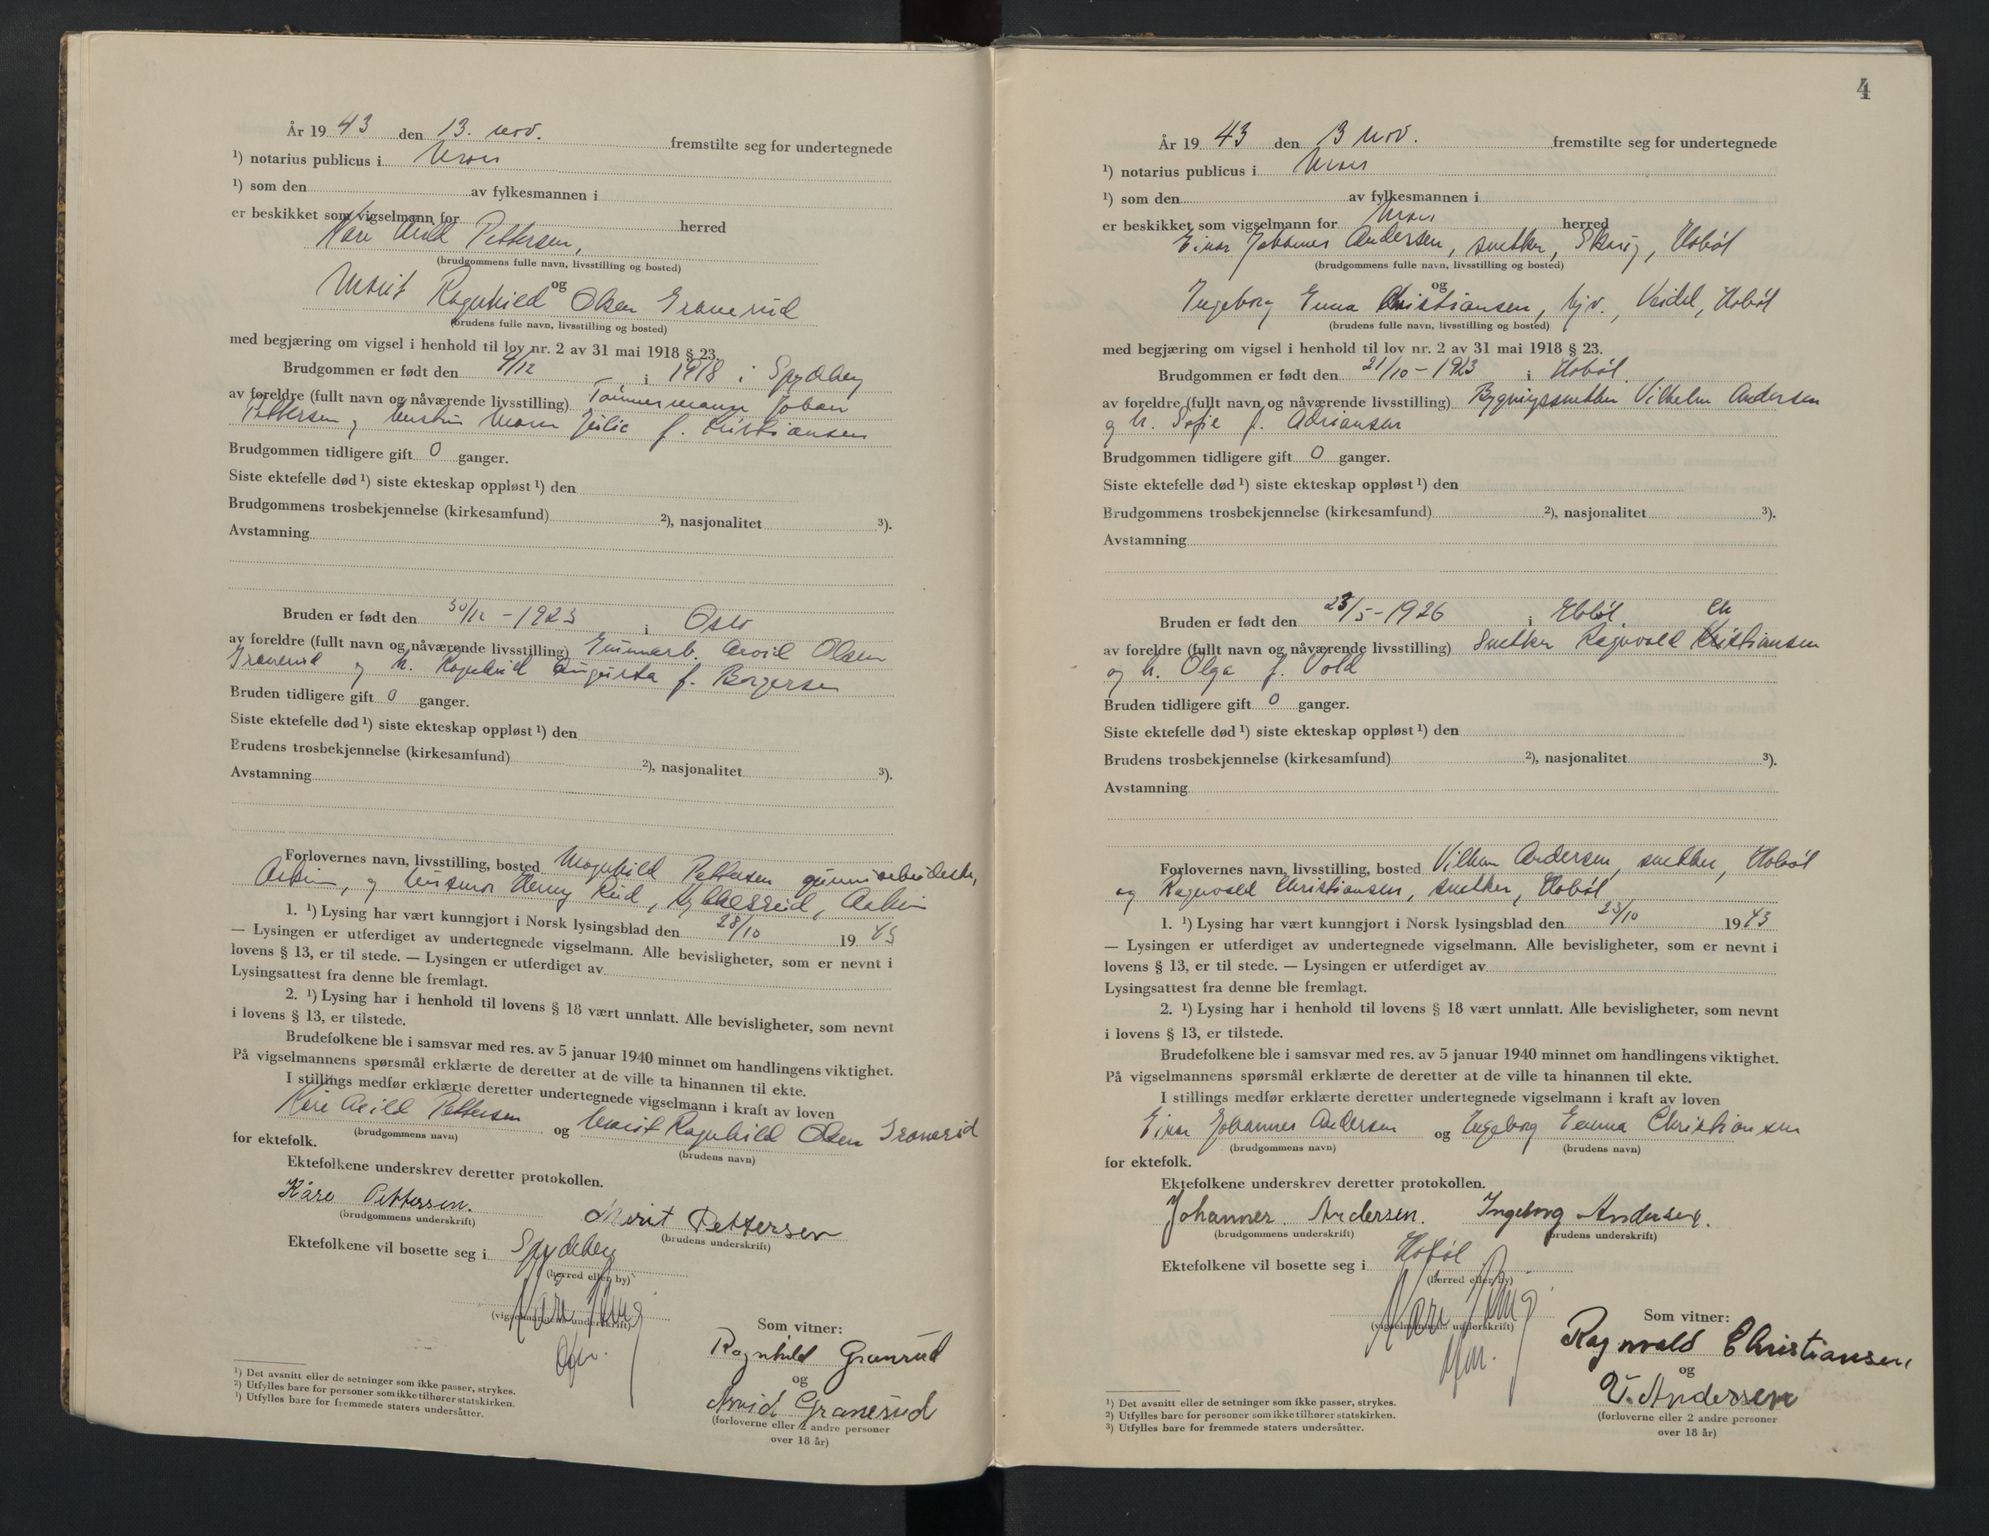 År 1943 den 13. nov. fremstilte seg for undertegnede
¹) notarius publicus i
¹) som den av fylkesmannen i
er beskikket som vigselmann for herred
Kåre Arild Pettersen,
(brudgommens fulle navn, livsstilling og bosted)
og
Marit Ragnhild Olsen Granerud
(brudens fulle navn, livsstilling og bosted)
med begjæring om vigsel i henhold til lov nr. 2 av 31 mai 1918 § 23.
Brudgommen er født den 4/12 i 1918 i Spydeberg
av foreldre (fullt navn og nåværende livsstilling) Tømmermann Johan
Pettersen og hustru Maren Julie f. Kristiansen
Brudgommen tidligere gift 0 ganger.
Siste ektefelle død ¹) siste ekteskap oppløst ¹) den
Brudgommens trosbekjennelse (kirkesamfund) ²), nasjonalitet ³).
Avstamning
Bruden er født den 30/12 - 1923 i Oslo
av foreldre (fullt navn og nåværende livsstilling) Gummiarb. Arvid Olsen
Granerud og h. Ragnhild Augusta f. Borgersen
Bruden tidligere gift 0 ganger.
Siste ektefelle død ¹) siste ekteskap oppløst ¹) den
Brudens trosbekjennelse (kirkesamfund) ²), nasjonalitet ³).
Avstamning
Forlovernes navn, livsstilling, bosted Magnhild Pettersen gummiarbeiderske,
Askim, og husmor Henny Rud, Askim
1. ¹) Lysing har vært kunngjort i Norsk lysingsblad den 28/10 1943
— Lysingen er utferdiget av undertegnede vigselmann. Alle bevisligheter, som er nevnt i
lovens § 13, er til stede. — Lysingen er utferdiget av
Lysingsattest fra denne ble fremlagt.
2. ¹) Lysing har i henhold til lovens § 18 vært unnlatt. Alle bevisligheter, som nevnt
i lovens § 13, er tilstede.
Brudefolkene ble i samsvar med res. av 5 januar 1940 minnet om handlingens viktighet.
På vigselmannens spørsmål erklærte de deretter at de ville ta hinannen til ekte.
I stillings medfør erklærte deretter undertegnede vigselmann i kraft av loven
Kåre Arild Pettersen og Marit Ragnhild Olsen Granerud
(brudgommens navn) (brudens navn)
for ektefolk.
Ektefolkene underskrev deretter protokollen.
Kåre Pettersen. Marit Pettersen
(brudgommens underskrift) (brudens underskrift)
Ektefolkene vil bosette seg i Spydeberg
(herred eller by)
(vigselmannens underskrift)
Som vitner:
Ragnhild Granrud
og
Arvid Granerud
(forloverne eller 2 andre personer
over 18 år)
¹) Det avsnitt eller de setninger som ikke passer, strykes.
²) Utfylles bare for personer som ikke tilhører statskirken.
³) Utfylles bare for fremmede staters undersåtter.
4
År 1943 den 13 nov. fremstilte seg for undertegnede
¹) notarius publicus i
¹) som den av fylkesmannen i
er beskikket som vigselmann for herred
Einar Johannes Andersen, snekker, Skrig, Hobøl
(brudgommens fulle navn, livsstilling og bosted)
og
Ingeborg Emma Christiansen, hjv., Veidel, Hobøl
(brudens fulle navn, livsstilling og bosted)
med begjæring om vigsel i henhold til lov nr. 2 av 31 mai 1918 § 23.
Brudgommen er født den 21/10 - 1923 i Hobøl.
av foreldre (fullt navn og nåværende livsstilling) Bygningssnekker Vilhelm Andersen
og h. Sofie f. Adriansen
Brudgommen tidligere gift 0 ganger.
Siste ektefelle død ¹) siste ekteskap oppløst ¹) den
Brudgommens trosbekjennelse (kirkesamfund) ²), nasjonalitet ³).
Avstamning
Bruden er født den 23/5 - 1926 i Hobøl. Ch
av foreldre (fullt navn og nåværende livsstilling) Snekker Ragnvald Kristiansen
og h. Olga f. Vold
Bruden tidligere gift 0 ganger.
Siste ektefelle død ¹) siste ekteskap oppløst ¹) den
Brudens trosbekjennelse (kirkesamfund) ²), nasjonalitet ³).
Avstamning
Forlovernes navn, livsstilling, bosted Vilhelm Andersen, snekker, Hobøl
og Ragnvald Christiansen, snekker, Hobøl
1. ¹) Lysing har vært kunngjort i Norsk lysingsblad den 23/10 1943
— Lysingen er utferdiget av undertegnede vigselmann. Alle bevisligheter, som er nevnt i
lovens § 13, er til stede. — Lysingen er utferdiget av
Lysingsattest fra denne ble fremlagt.
2. ¹) Lysing har i henhold til lovens § 18 vært unnlatt. Alle bevisligheter, som nevnt
i lovens § 13, er tilstede.
Brudefolkene ble i samsvar med res. av 5 januar 1940 minnet om handlingens viktighet.
På vigselmannens spørsmål erklærte de deretter at de ville ta hinannen til ekte.
I stillings medfør erklærte deretter undertegnede vigselmann i kraft av loven
Einar Johannes Andersen og Ingeborg Emma Christiansen
(brudgommens navn) (brudens navn)
for ektefolk.
Ektefolkene underskrev deretter protokollen.
Johannes Andersen. Ingeborg Andersen.
(brudgommens underskrift) (brudens underskrift)
Ektefolkene vil bosette seg i Hobøl
(herred eller by)
(vigselmannens underskrift)
Som vitner:
Ragnvald Christiansen
og
V. Andersen
(forloverne eller 2 andre personer
over 18 år)
¹) Det avsnitt eller de setninger som ikke passer, strykes.
²) Utfylles bare for personer som ikke tilhører statskirken.
³) Utfylles bare for fremmede staters undersåtter.